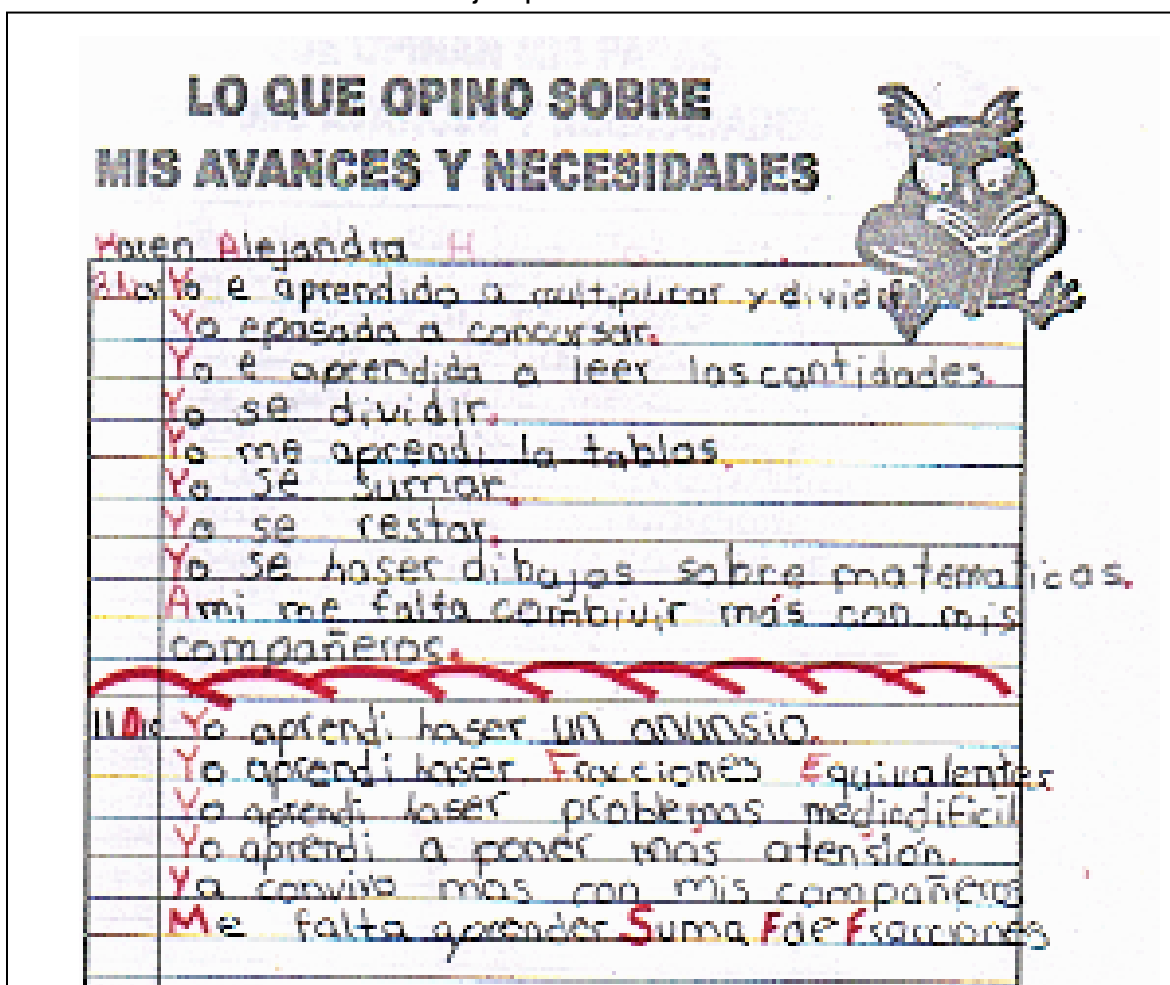 LO QUE OPINO SOBRE
MIS AVANCES Y NECESIDADES
Karen Alejandra H
Yo e aprendido a multiplicar y dividir
Yo epasado a concursar.
Yo e aprendido a leer las cantidades.
Yo se dividir.
Yo me aprendi la tablas.
Yo se sumar.
Yo se restar.
Yo se haser dibujos sobre matematicas.
Ami me falta combivir más con mis
compañeros.
11 Dic Yo aprendi haser un anunsio.
Yo aprendi haser Fracciones Equivalentes
Yo aprendi haser problemas mediodificil
Yo aprendi a poner más atensión.
Ya convivo mas con mis compañeros
Me falta aprender Suma F de Fracciones